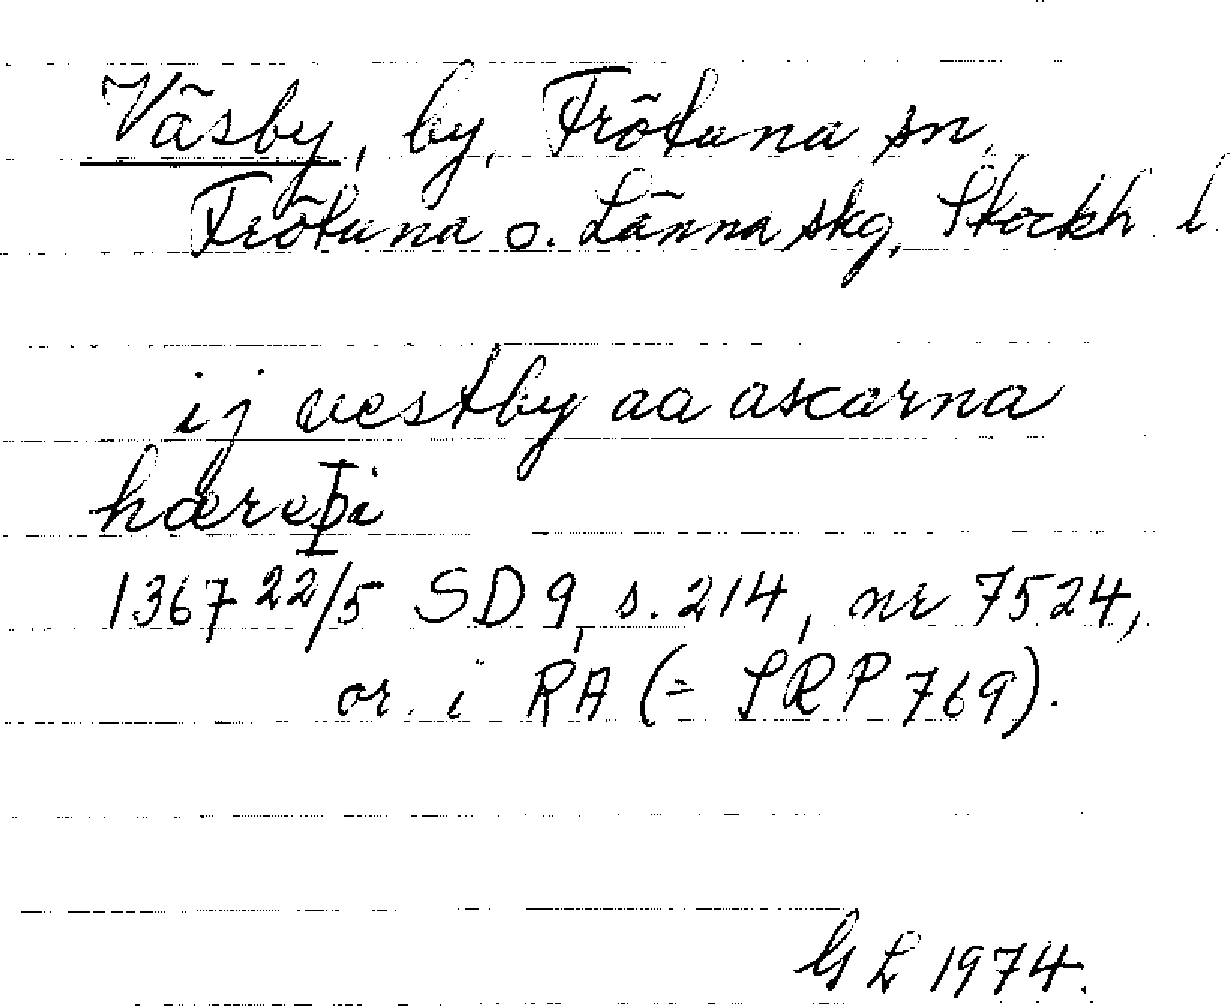 Väsby, by, Frötuna sn,
Frötuna o. Länna skg, Stockh l.
ij vestby aa ascarna
hæreþi
1367 22/5 SD 9, s. 214, nr 7524,
or. i RA (= SRP 769).
GL 1974.